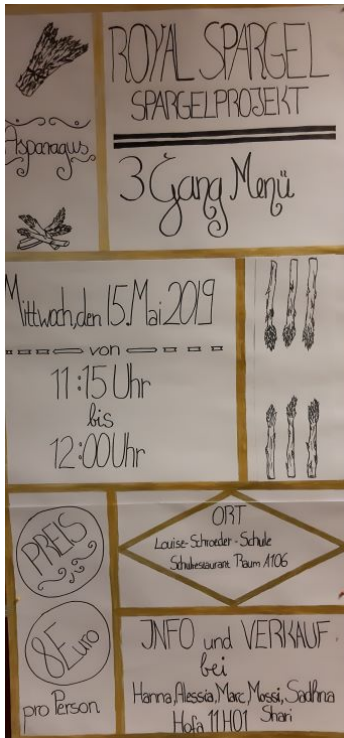 Asparagus
ROYAL SPARGEL
SPARGELPROJEKT
3 Gang Menü
Mittwoch, den 15. Mai 2019
von
11:15 Uhr
bis
12:00 Uhr
PREIS
8 Euro
pro Person
ORT
Louise-Schroeder-Schule
Schulrestaurant Raum A106
INFO und VERKAUF
bei
Hanna, Alessia, Marc, Mossi, Sadhna
Shari
Hofa 11H01